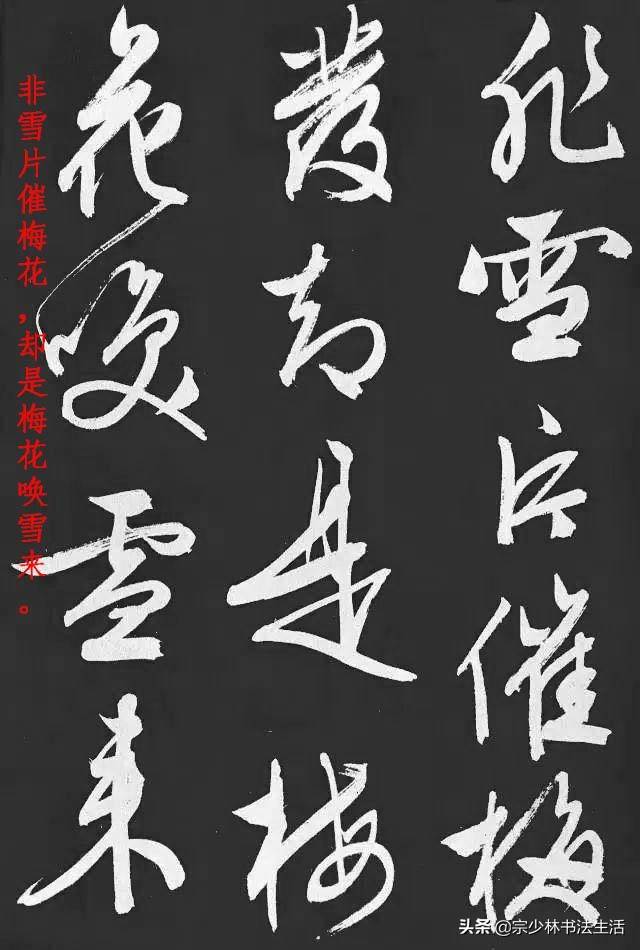 非雪片催梅
發却是梅
花唤雪来
非雪片催梅花，却是梅花唤雪来。
头条 @宗少林书法生活